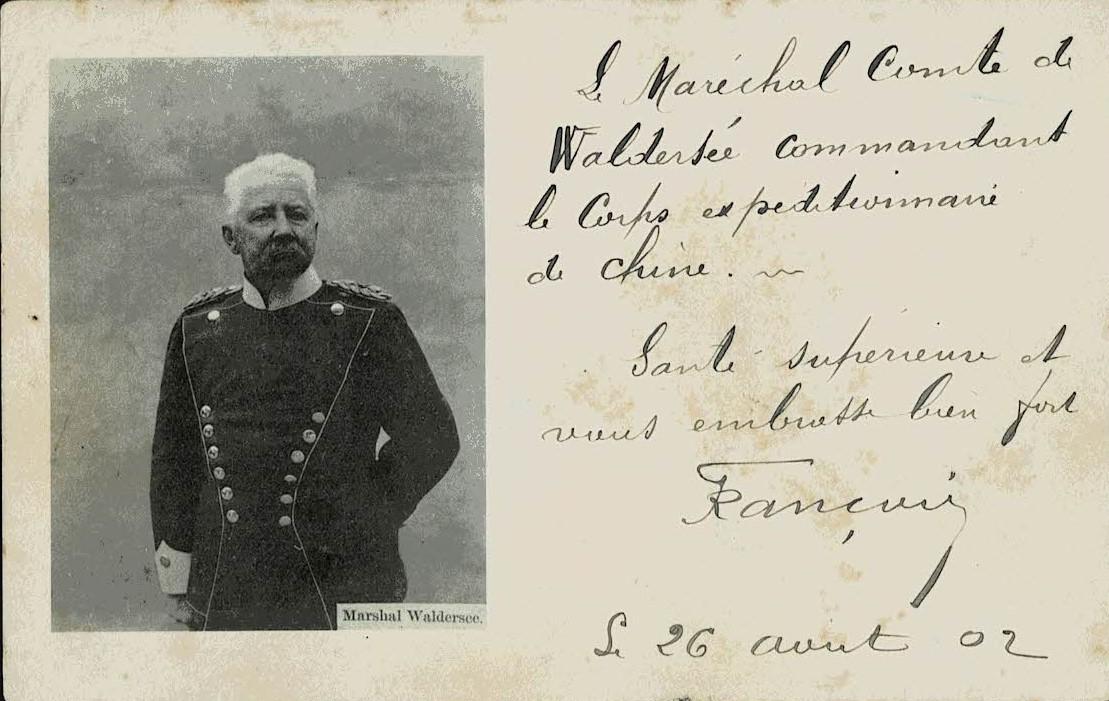 Marshal Waldersee.
Le Maréchal Comte de
Waldersée commandant
le Corps expéditionnaire
de Chine.
Santé supérieure et
vous embrasse bien fort
François
Le 26 août 02